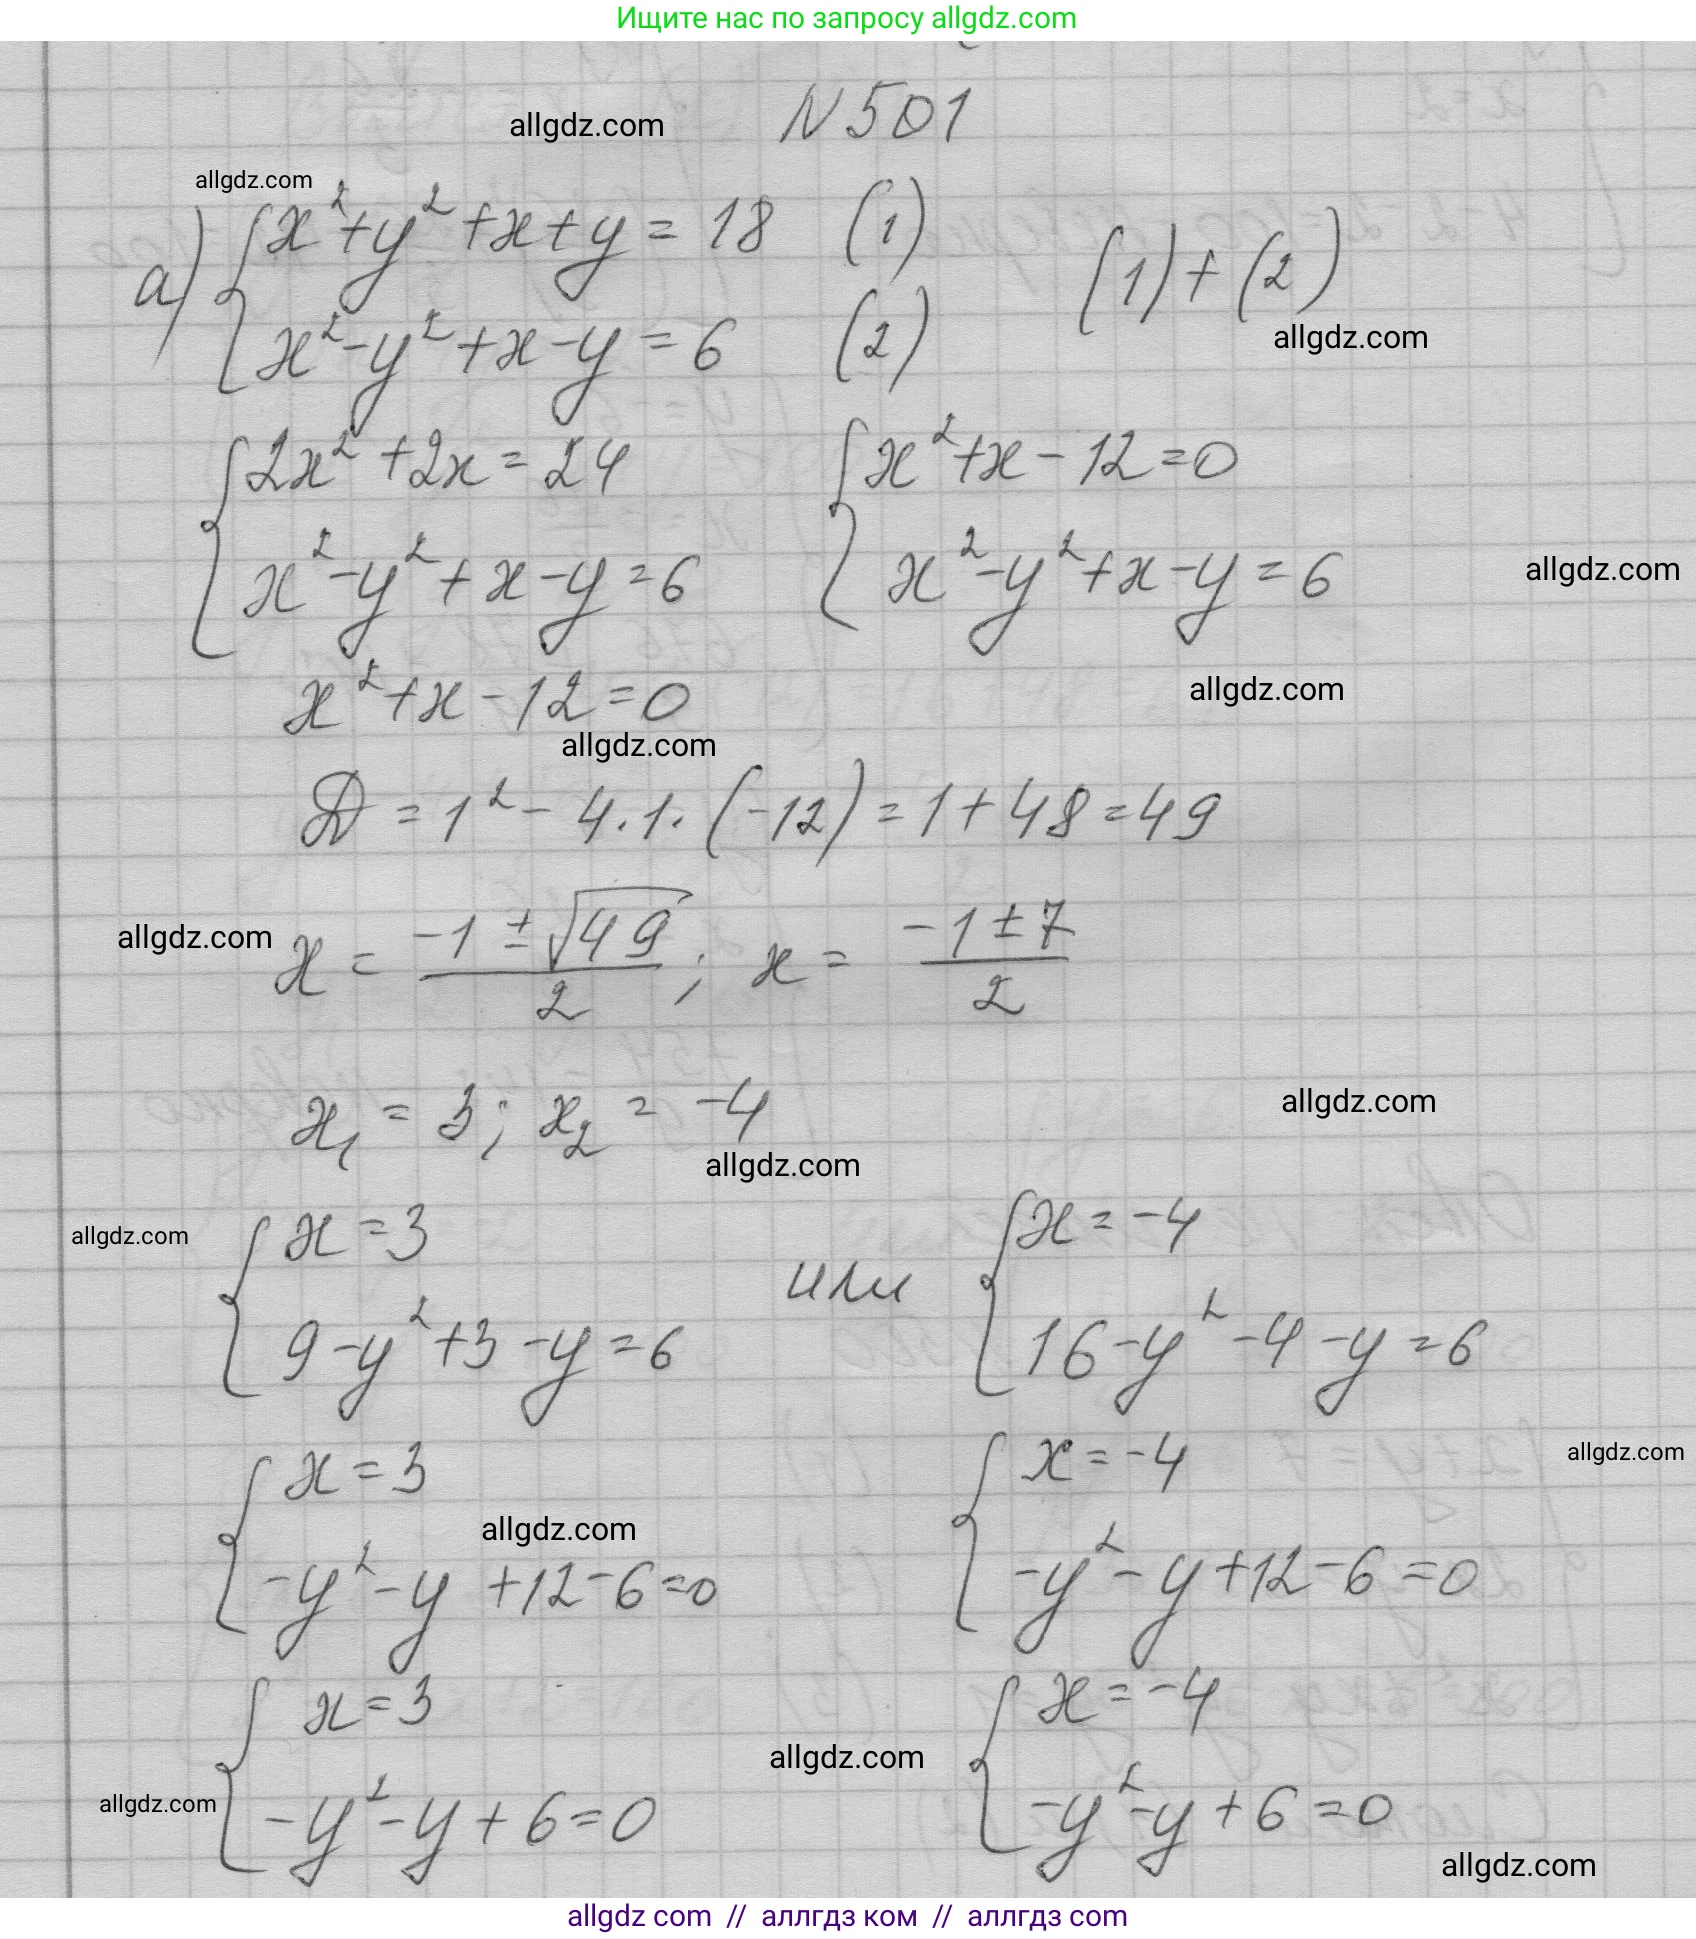 Ищите нас по запросу allgdz.com
allgdz.com
N 501
allgdz.com
а) { x² + y² + x + y = 18 (1)
x² - y² + x - y = 6 (2)
(1) + (2)
allgdz.com
{ 2x² + 2x = 24
x² - y² + x - y = 6
{ x² + x - 12 = 0
x² - y² + x - y = 6
allgdz.com
x² + x - 12 = 0
allgdz.com
allgdz.com
D = 1² - 4 · 1 · (-12) = 1 + 48 = 49
allgdz.com
x = (-1 ± √49)/2 ; x = (-1 ± 7)/2
x₁ = 3; x₂ = -4
allgdz.com
allgdz.com
allgdz.com
{ x = 3
9 - y² + 3 - y = 6
или
{ x = -4
16 - y² - 4 - y = 6
{ x = 3
-y² - y + 12 - 6 = 0
allgdz.com
{ x = -4
-y² - y + 12 - 6 = 0
allgdz.com
{ x = 3
-y² - y + 6 = 0
allgdz.com
allgdz.com
{ x = -4
-y² - y + 6 = 0
allgdz.com
allgdz com // аллгдз ком // аллгдз com